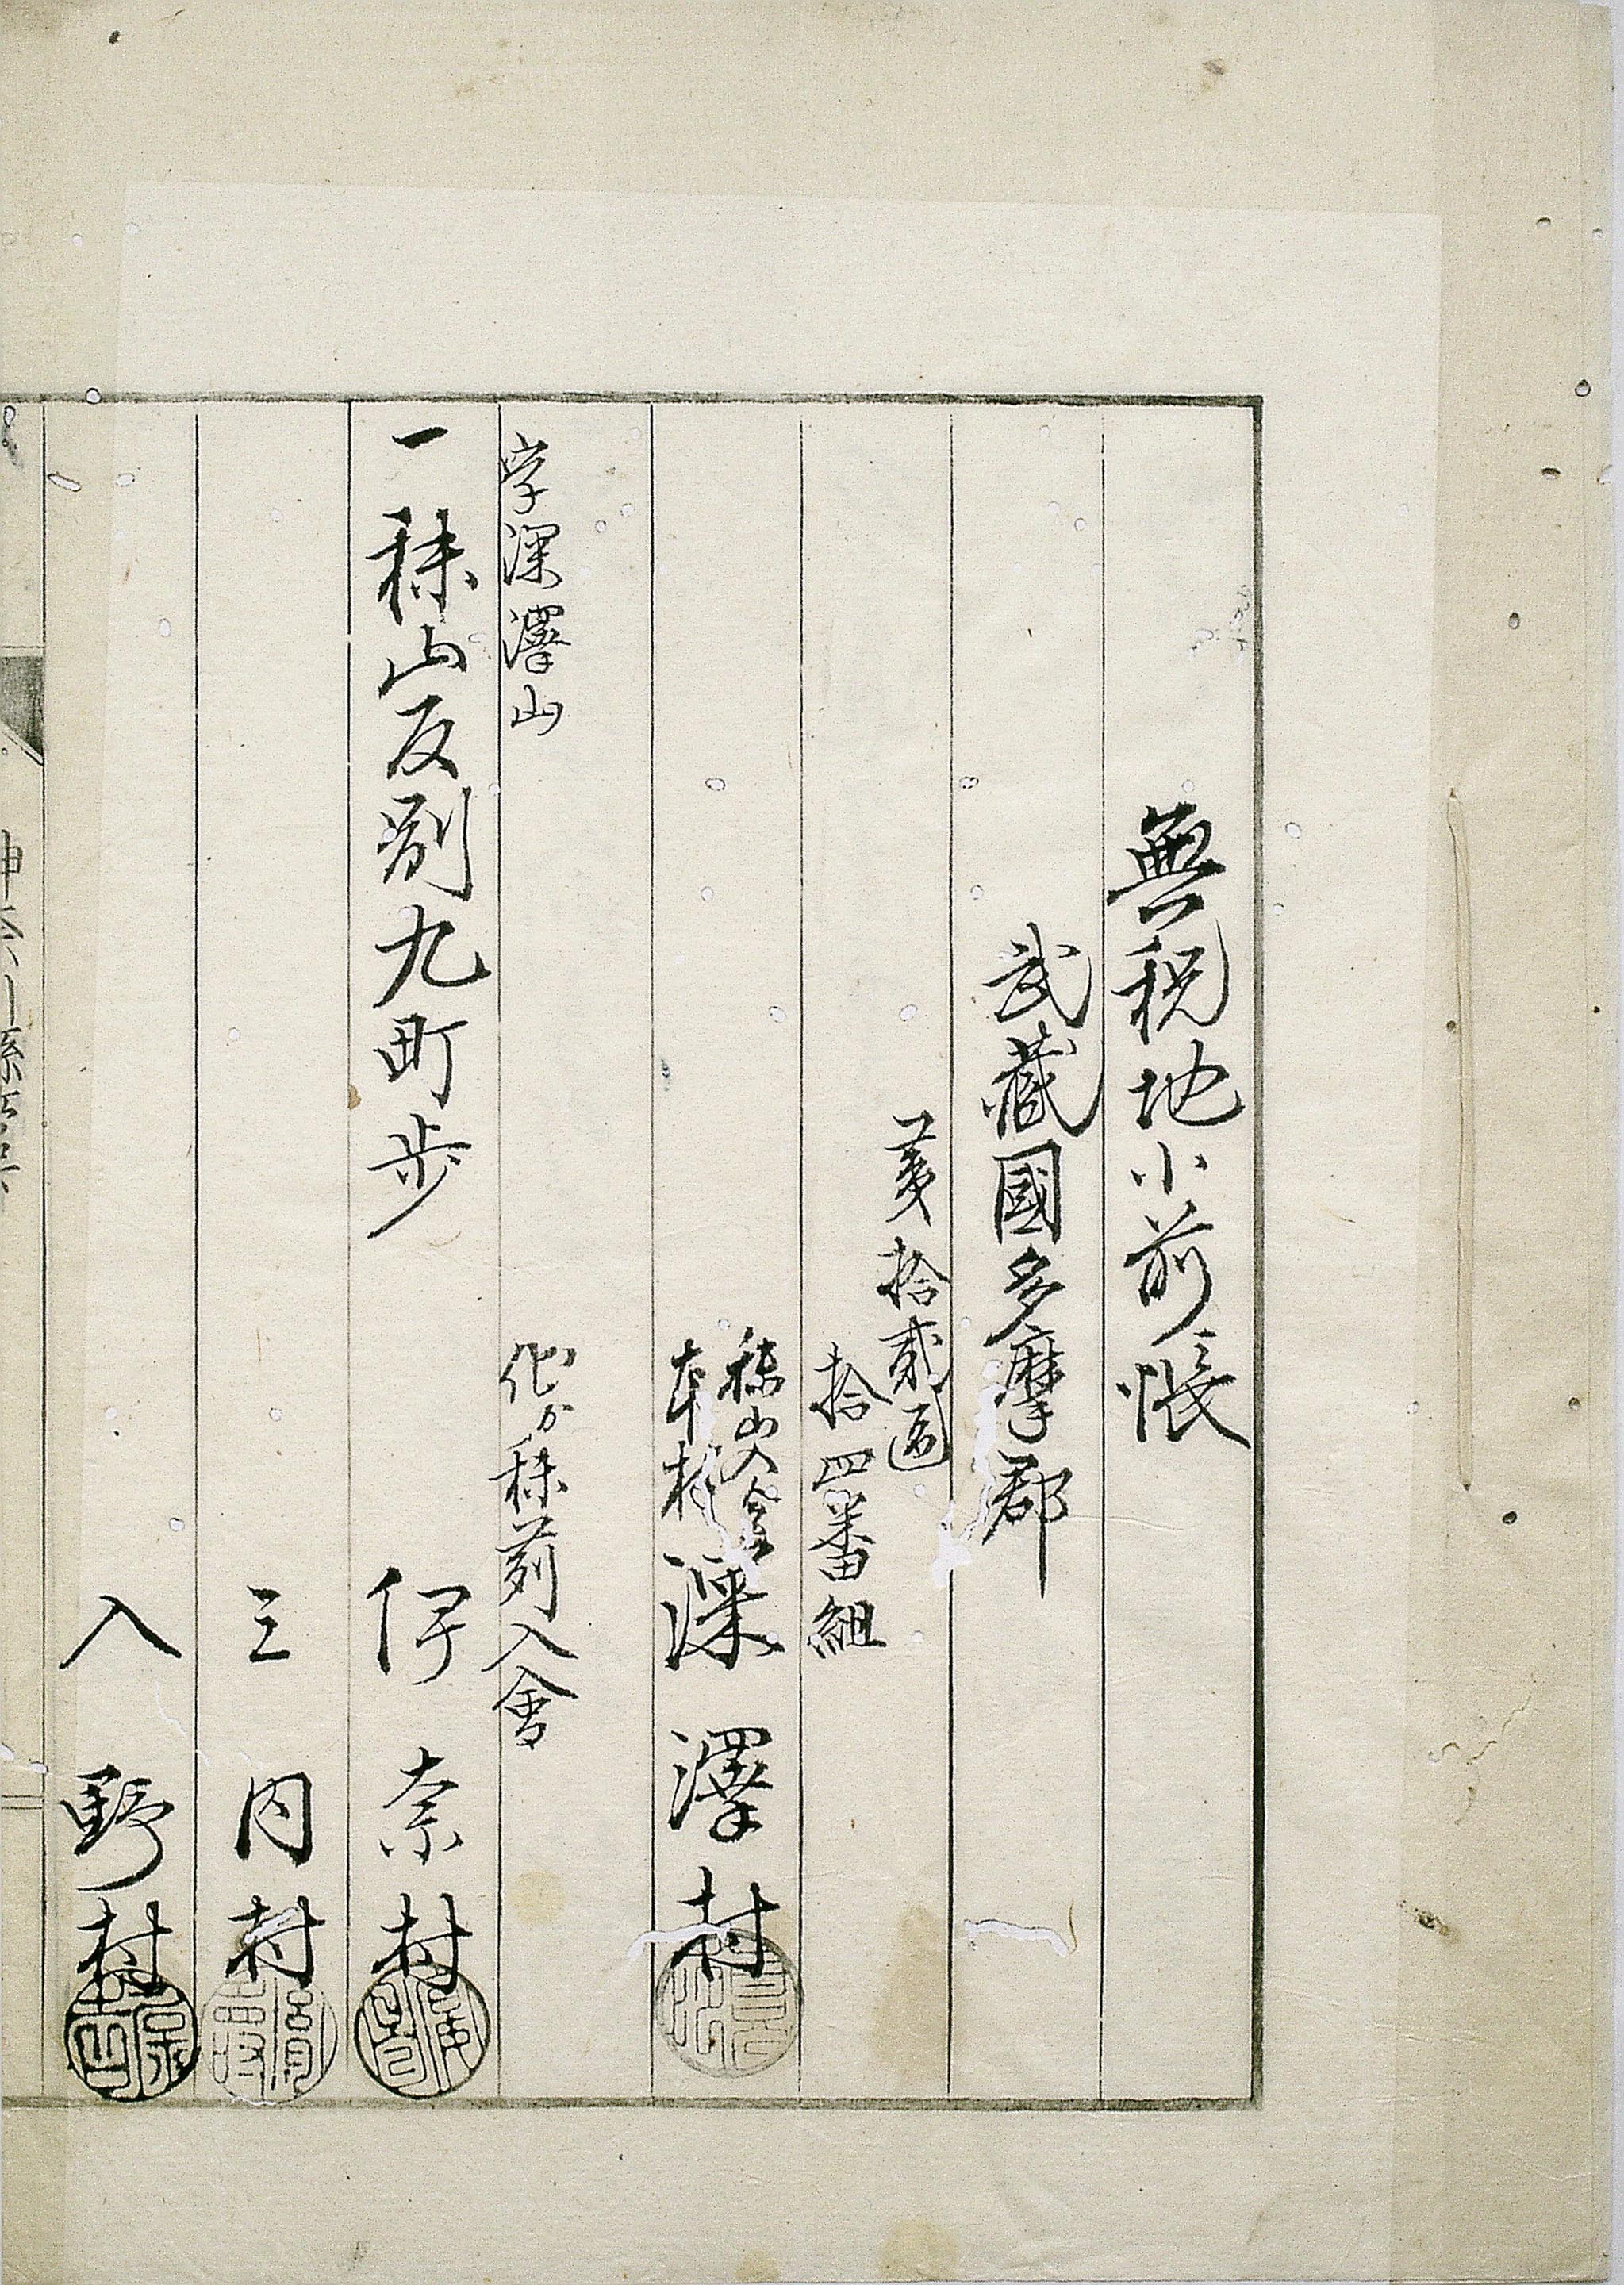 無税地小前帳
武藏國多摩郡
第拾貳區
拾四番組
秣山入會
本村
深澤村
字深澤山
他ゟ秣苅入會
一秣山反別九町歩
伊奈村
三内村
入野村